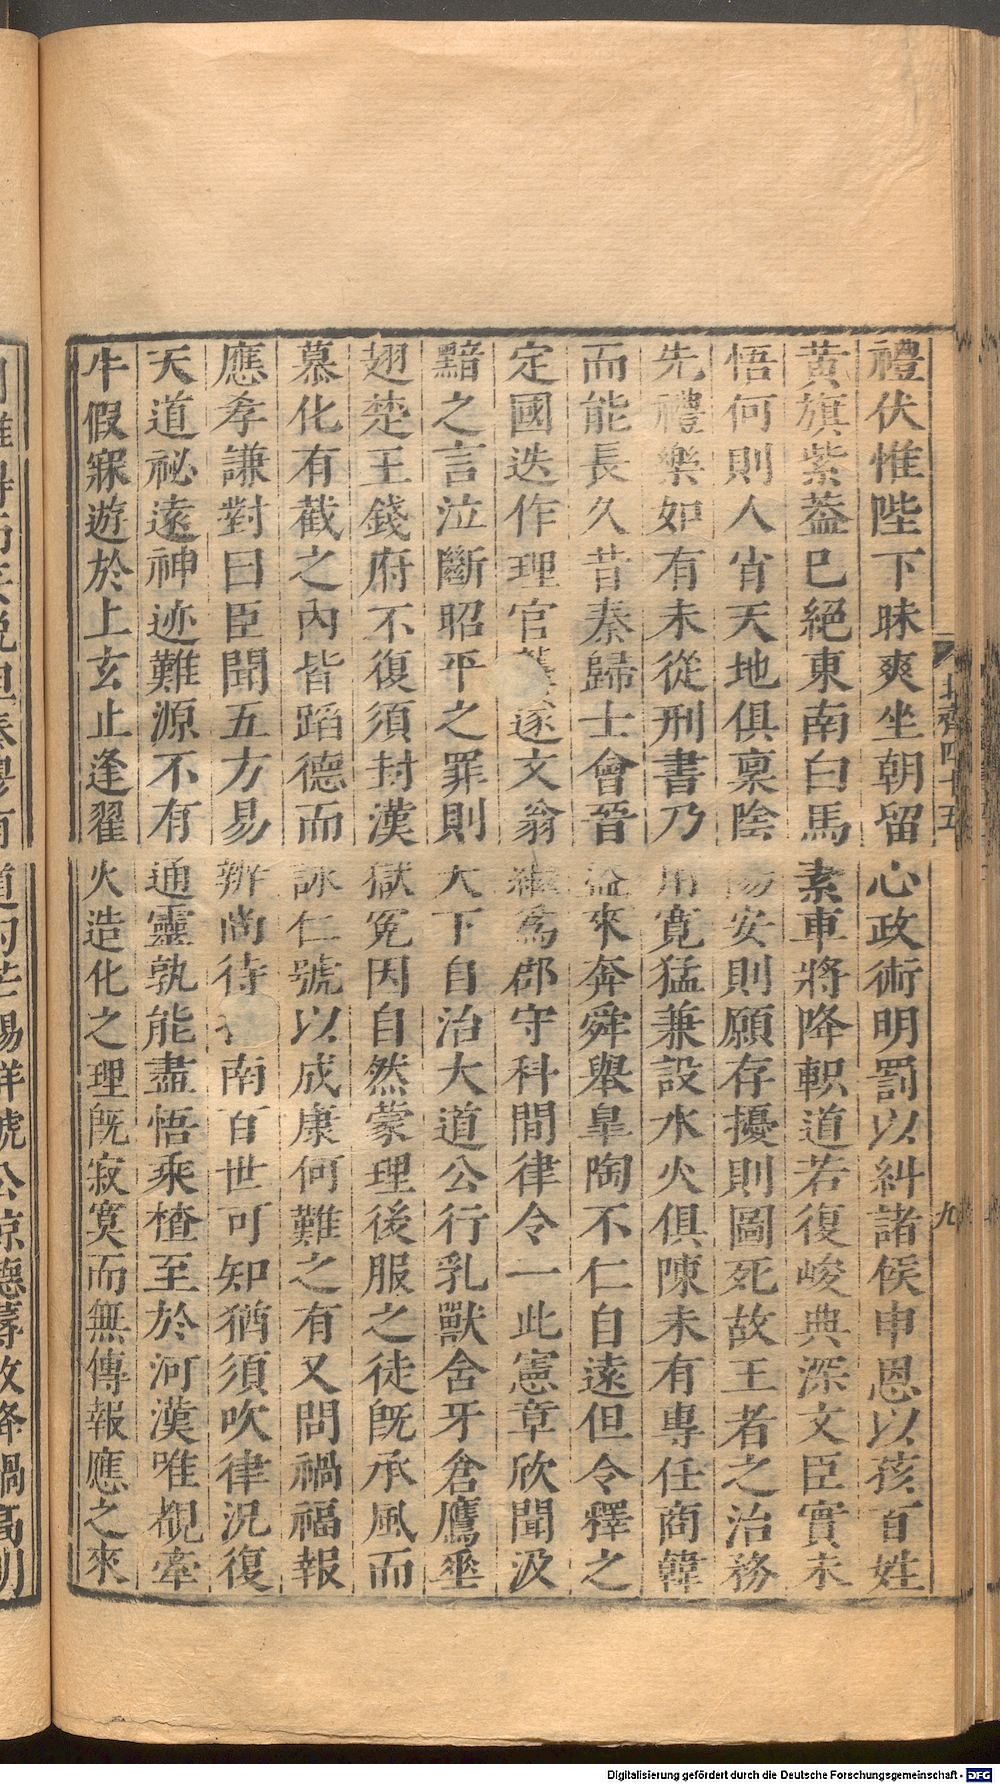 北齊四十五
九
禮伏惟陛下昧爽坐朝留心政術明罰以糾諸侯申恩以孩百姓
黃旗紫葢巳絕東南白馬素車將降軹道若復峻典深文臣實未
悟何則人肖天地俱稟陰陽安則願存擾則圖死故王者之治務
先禮樂如有未從刑書乃用寬猛兼設水火俱陳未有專任商韓
而能長久昔秦歸士會晉盜來奔舜舉皐陶不仁自遠但令釋之
定國迭作理官龔遂文翁繼爲郡守科間律令一此憲章欣聞汲
黯之言泣斷昭平之罪則大下自治大道公行乳獸含牙倉鷹垂
翅楚王錢府不復須封漢獄冤囚自然蒙理後服之徒旣承風而
慕化有截之內皆蹈德而詠仁號以成康何難之有又問禍福報
應孝謙對曰臣聞五方易辨尚待南百世可知猶須吹律況復
天道祕遠神迹難源不有通靈孰能盡悟乘楂至於河漢唯覩牽
牛假寐遊於上玄止逢翟火造化之理旣寂寞而無傳報應之來
Digitalisierung gefördert durch die Deutsche Forschungsgemeinschaft - DFG